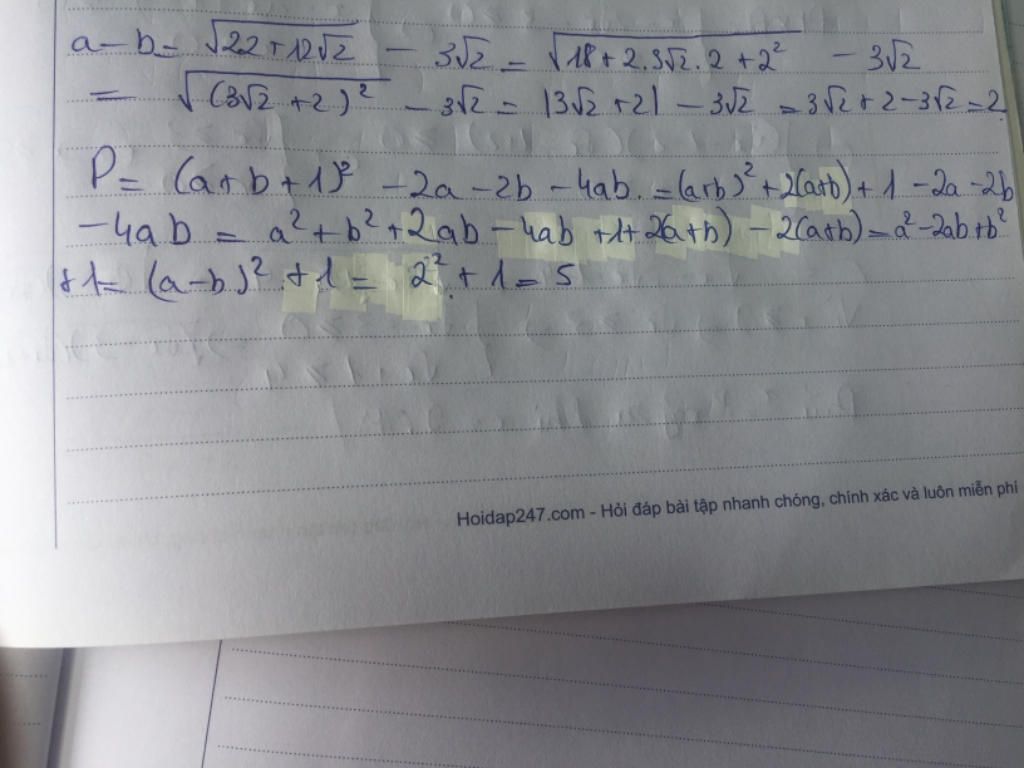 a-b= √(22+12√2) - 3√2 = √(18+2.3√2.2+2²) - 3√2
= √((3√2+2)²) - 3√2 = |3√2+2| - 3√2 = 3√2+2-3√2=2
P= (a+b+1)² -2a-2b-4ab.=(a+b)²+2(a+b)+1-2a-2b
-4ab = a²+b²+2ab-4ab+1+2(a+b)-2(a+b)=a²-2ab+b²
+1= (a-b)²+1= 2²+1=5
Hoidap247.com - Hỏi đáp bài tập nhanh chóng, chính xác và luôn miễn phí